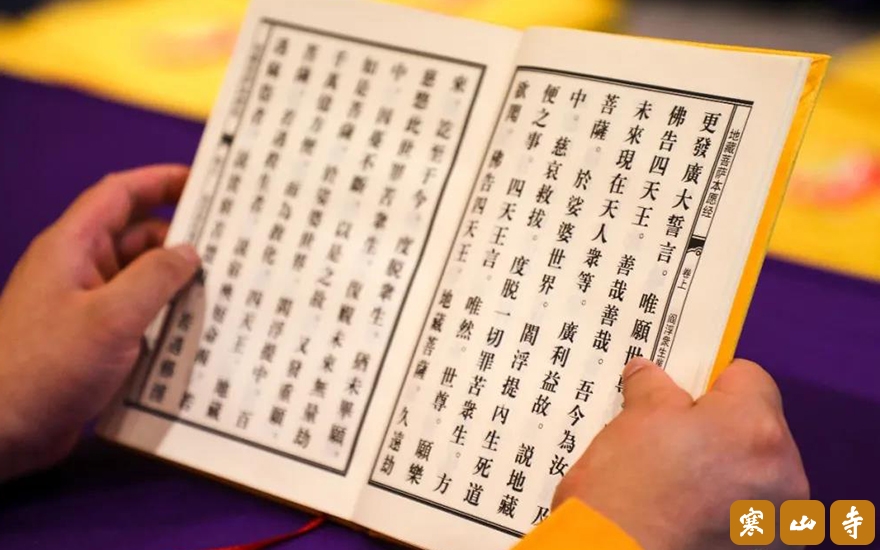 地藏菩萨本愿经 卷上 阎浮衆生
更發廣大誓言。唯願世
佛告四天王。善哉善哉。吾今為汝及
未來現在天人衆等。廣利益故。說地藏
菩薩。於娑婆世界。閻浮提内生死道
中。慈哀救拔。度脱一切罪苦衆生。方
便之事。四天王言。唯然。世尊。願樂
欲聞。佛告四天王。地藏菩薩。久遠劫
來。迄至于今。度脱衆生。猶未畢願。
慈愍此世罪苦衆生。復觀未來無量劫
中。因蔓不斷。以是之故。又發重願。
如是菩薩。於娑婆世界。閻浮提中。百
千萬億方便。而為教化。四天王。地藏
菩薩。若遇殺生者。說宿殃短命報。若
遇竊盜者。說貧窮苦楚 若遇邪淫
寒山寺